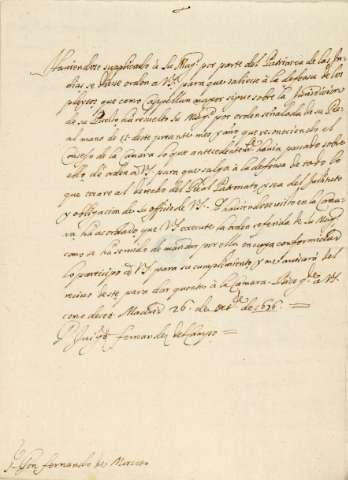 Haviendose suplicado à Su Mag.d por parte del Patriarca de las In-
dias se diese orden a VS. para que saliese à la defensa de los
pleytos que como Capellan mayor sigue sobre la Jurisdicion
de su Puesto ha resuelto Su Mag.d por orden señalada de su Real
mano de 17 deste presente mes, y año que reconociendo el
Consejo de la Camara lo que antecedentem.te havia pasado sobre
ello dé orden à VS. para que salga à la defensa de todo lo
que tocare al derecho del Real Patronato y sea del Instituto
y obligacion de su officio de VS. Y haviendose visto en la Cama-
ra ha acordado que VS. execute la orden referida de Su Mag.d
como se ha servido de mandar por ella en cuya conformidad
lo participo à VS. para su cumplimiento, y me avisará del
recivo deste para dar quenta à la Camara. Dios g.de a VS.
como deseo. Madrid 26 de de 1676.
Fernandez del Campo
S.r Don Fernando de